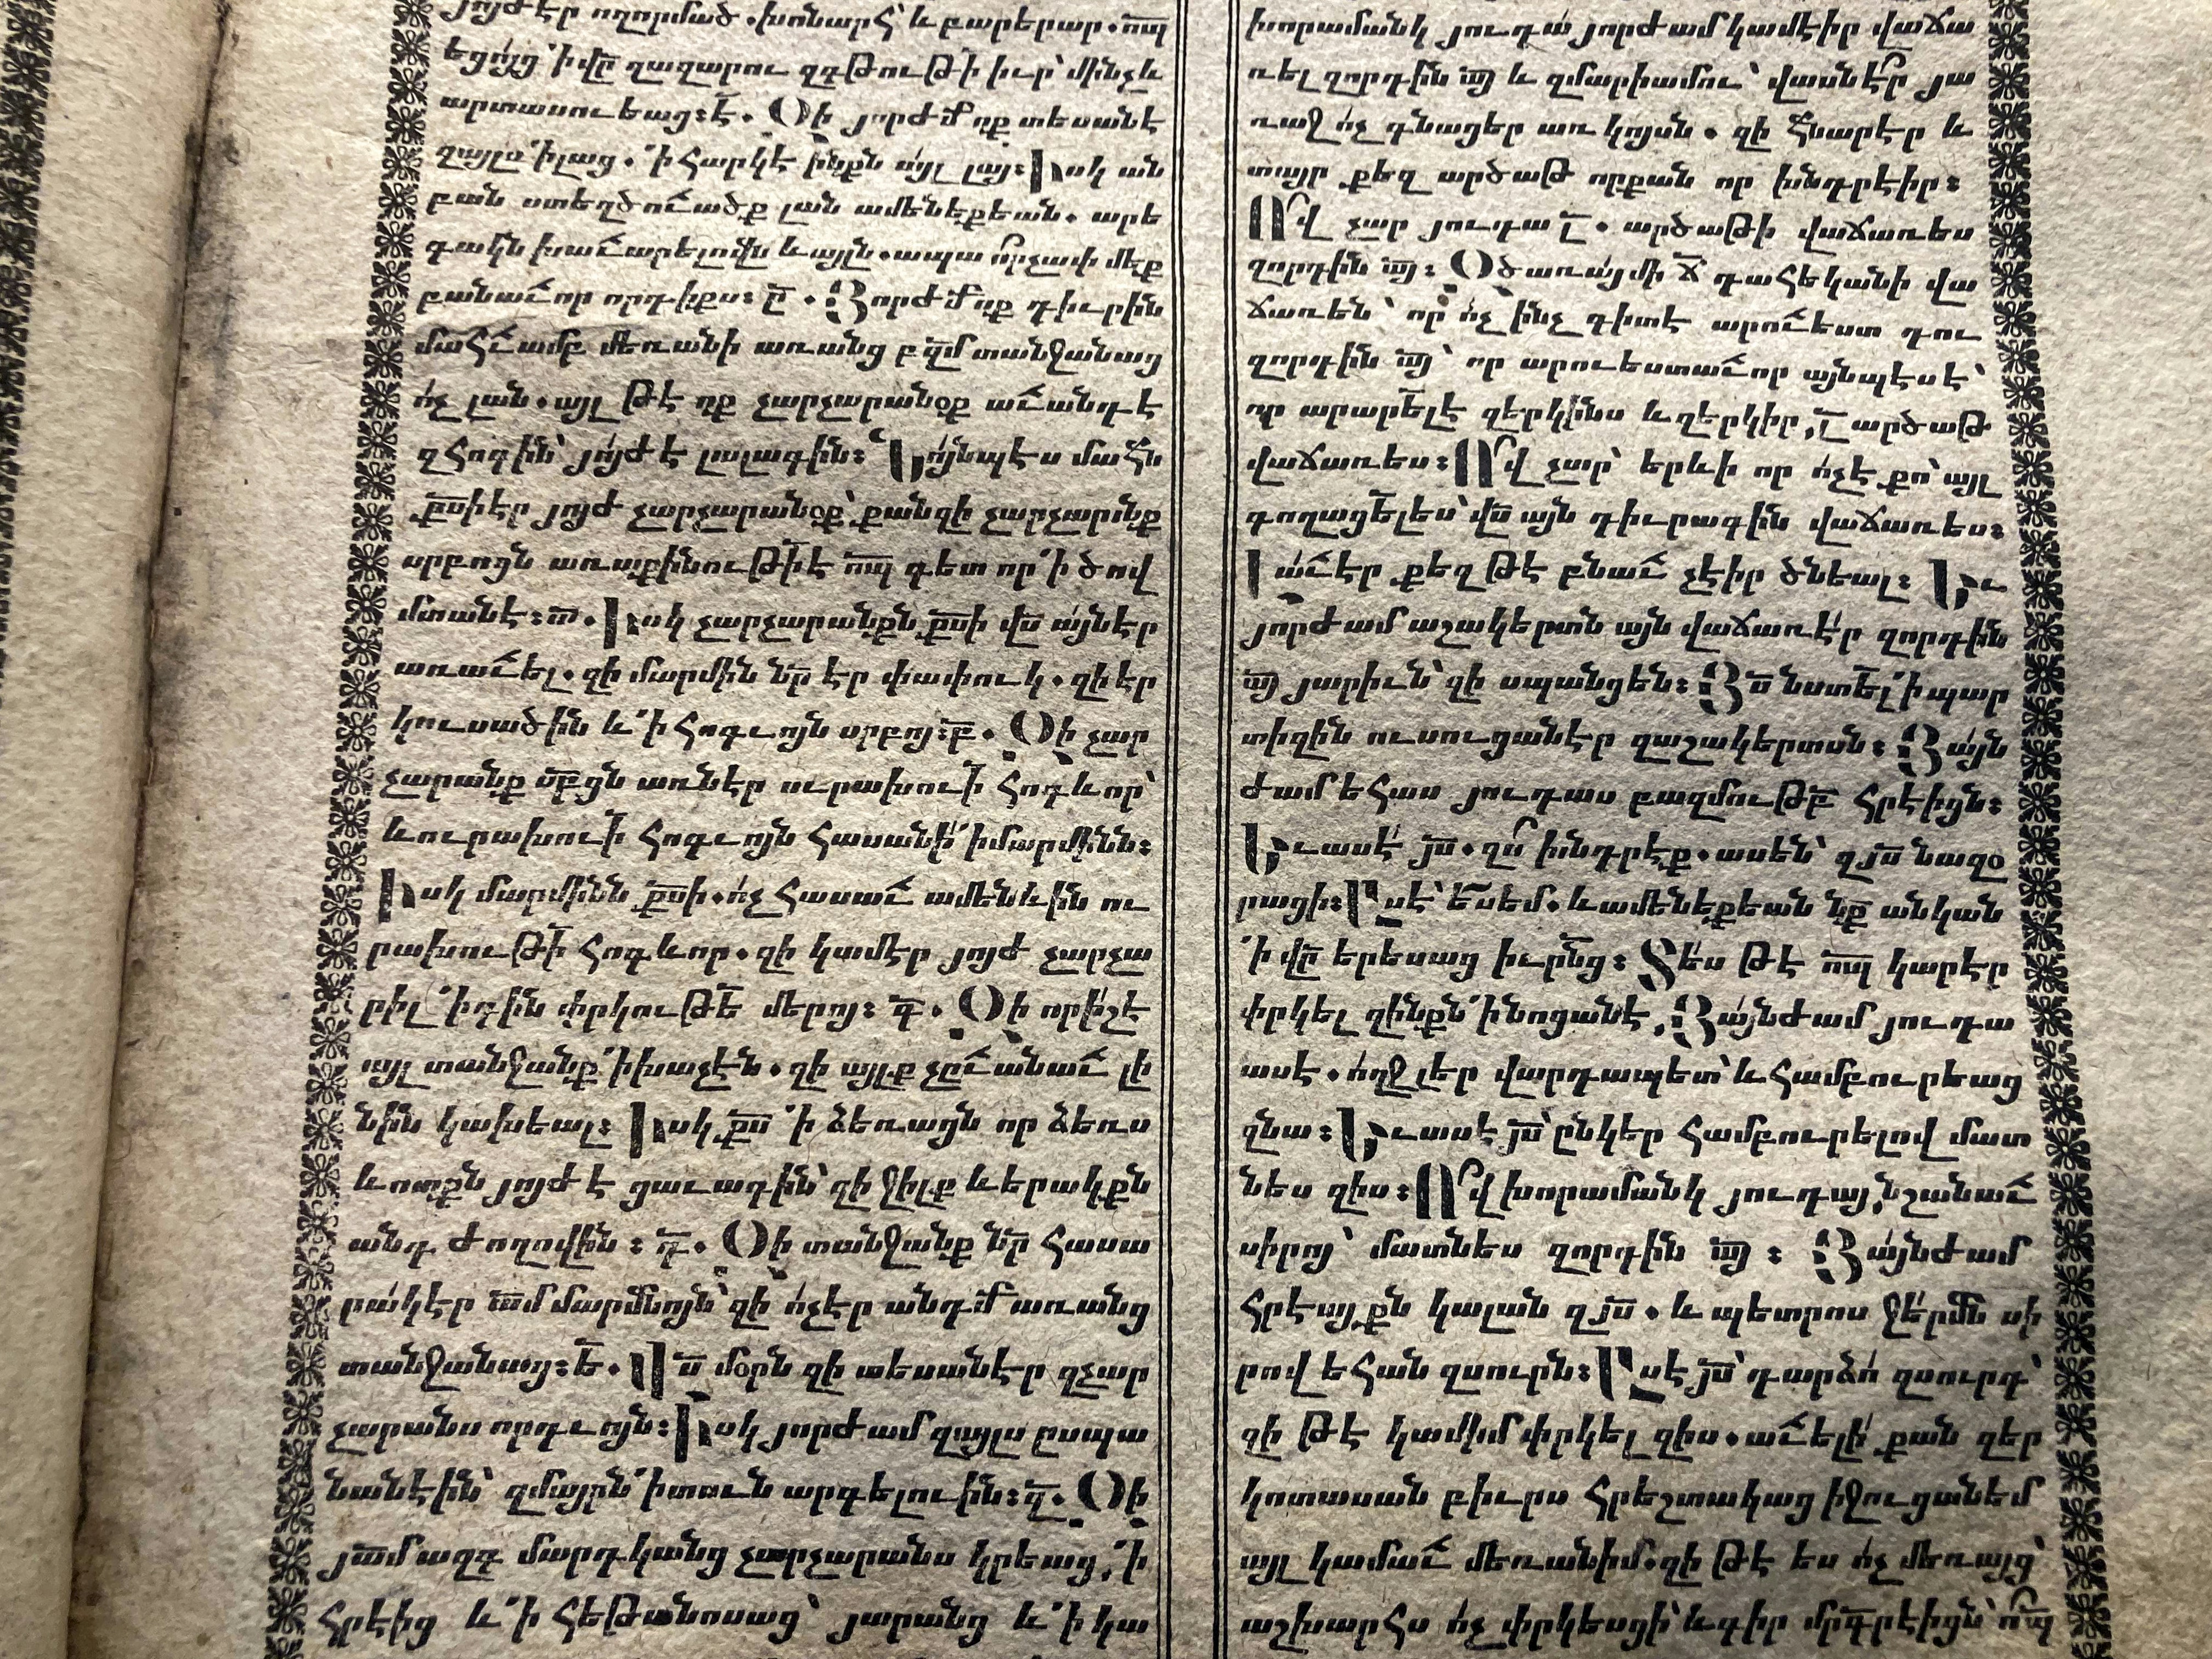 յոյժ էր ողորմած . խոնարհ՝ և բարերար . ո՟պ
եցոյց ՚ի վր՟ ղազարու զգթութի՟ իւր՝ մինչև
արտասուեաց։ է՟ . Օի յորժմ՟ ոք տեսանէ
զայլս ՚ի լաց . ՚ի հարկէ ինքն այլ լայ։ Իսկ ան
բան ստեղծուածք լան ամենեքեան . արե
գակն խաւարելովն և այլն . ապա ո՛րչափ մեք
բանաւոր որդիքս։ ը՟ . Յորժմ՟ ոք դիւրին
մահուամբ մեռանի առանց բզ՟մ տանջանաց
ո՛չ լան . այլ թէ ոք չարչարանօք աւանդէ
զհոգին՝ յոյժ է լալագին։ Նոյնպէս մահն
քս՟ի էր յոյժ չարչարանօք՝ քանզի չարչարինք
սրբոցն առաքինութի՟ է ո՟պ գետ որ ՚ի ծով
մտանէ։ ա՟ . Իսկ չարչարանքն քս՟ի վս՟ այն էր
առաւել . զի մարմին նր՟ էր փափուկ . զի էր
կուսածին և ՚ի հոգւոյն սրբոյ։ բ՟ . Օի չար
չարանք սր՟բցն առնէր ուրախուի՟ հոգևոր՝
և ուրախուի՟ հոգւոյն հասանէ՛ ՚ի մարմինն։
Իսկ մարմինն քս՟ի . ո՛չ հասաւ ամենևին ու
րախութի՟ հոգևոր . զի կամէր յոյժ չարչա
րիլ ՚ի գին փրկութե՟ մերոյ։ գ՟ . Օի որի՛շ է
այլ տանջանք ՚ի խաչէն . զի այլք չըւանաւ լի
նին կախեալ։ Իսկ քս՟ ՚ի ձեռացն որ ձեռս
և ոտքն յոյժ է ցաւագին՝ զի ջիլք և երակքն
անդ ժողովին ։ դ՟ . Օի տանջանք նր՟ հասա
րակ էր ա՟մ մարմնոյն՝ զի ո՛չ էր անդմ՟ առանց
տանջանաց։ ե՟ . Վս՟ մօրն զի տեսանէր զչար
չարանս որդւոյն։ Իսկ յորժամ զայլս ըսպա
նանէին՝ զմայրն ՚ի տունն արգելուին։ զ՟ . Օի
յա՟մ ազգ մարդկանց չարչարանս կրեաց, ՚ի
հրէից և ՚ի հեթանոսաց՝ յարանց և ՚ի կա
խորամանկ յուդա յորժամ կամէիր վաճա
ռել զորդին ա՟յ և զմարիամու՝ վասն է՞ր յա
ռաջ ո՛չ գնացեր առ կոյսն . զի հնարէր և
տայր քեզ արծաթ որքան որ խնդրէիր։
Ո՜վ չար յուդա լ՟ . արծաթի վաճառես
զորդին ա՟յ։ Օծառայ մի ճ՟ դահեկանի վա
ճառեն՝ որ ո՛չ ինչ գիտէ արուեստ դու
զորդին ա՟յ՝ որ արուեստաւոր այնպէս է՝
որ արարել՟ է զերկինս և զերկիր, լ՟ արծաթ
վաճառես։ Ո՜վ չար՝ երևի որ ո՛չ է քո՝ այլ
գողացել՟ ես՝ վս՟ այն դիւրագին վաճառես։
Լա՛ւ էր քեզ թէ բնաւ չէիր ծնեալ։ Եւ
յորժամ աշակերտն այն վաճառէ՛ր զորդին
ա՟յ յարիւն՝ զի սպանցեն։ Յս՟ նստել՟ ՚ի պար
տիզին ուսուցանէր զաշակերտսն։ Յայն
ժամ եհաս յուդաս բազմութբ՟ հրէիցն։
Եւ ասէ՛ յս՟ . զո՞ խնդրէք . ասեն՝ զյս՟ նազօ
րացի։ Ասէ՝ ե՟ս եմ . և ամենեքեան նք՟ անկան
՚ի վր՟ երեսաց իւրն՟ց։ Տե՛ս թէ ո՟պ կարէր
փրկել զինքն ՚ի նոցանէ, Յայնժամ յուդա
ասէ . ո՛ղջ լեր վարդապետ՝ և համբուրեաց
զնա։ Եւ ասէ յս՟՝ ընկեր համբուրելով մատ
նես զիս։ Ո՜վ խորամանկ յուդայ, նշանաւ
սիրոյ՝ մատնես զորդին ա՟յ ։ Յայնժամ
հրէայքն կալան զյս՟ . և պետրոս ջերմն սի
րով եհան զսուրն։ Ասէ յս՟՝ դարձո՛ զսուրդ՝
զի թէ կամիմ փրկել զիս . աւելի՛ քան զեր
կոտասան բիւրս հրեշտակաց իջուցանեմ
այլ կամաւ մեռանիմ . զի թէ ես ո՛չ մեռայց՝
աշխարհս ո՛չ փրկեսցի՝ և գիր մրգ՟րէիցն՝ ո՟պ